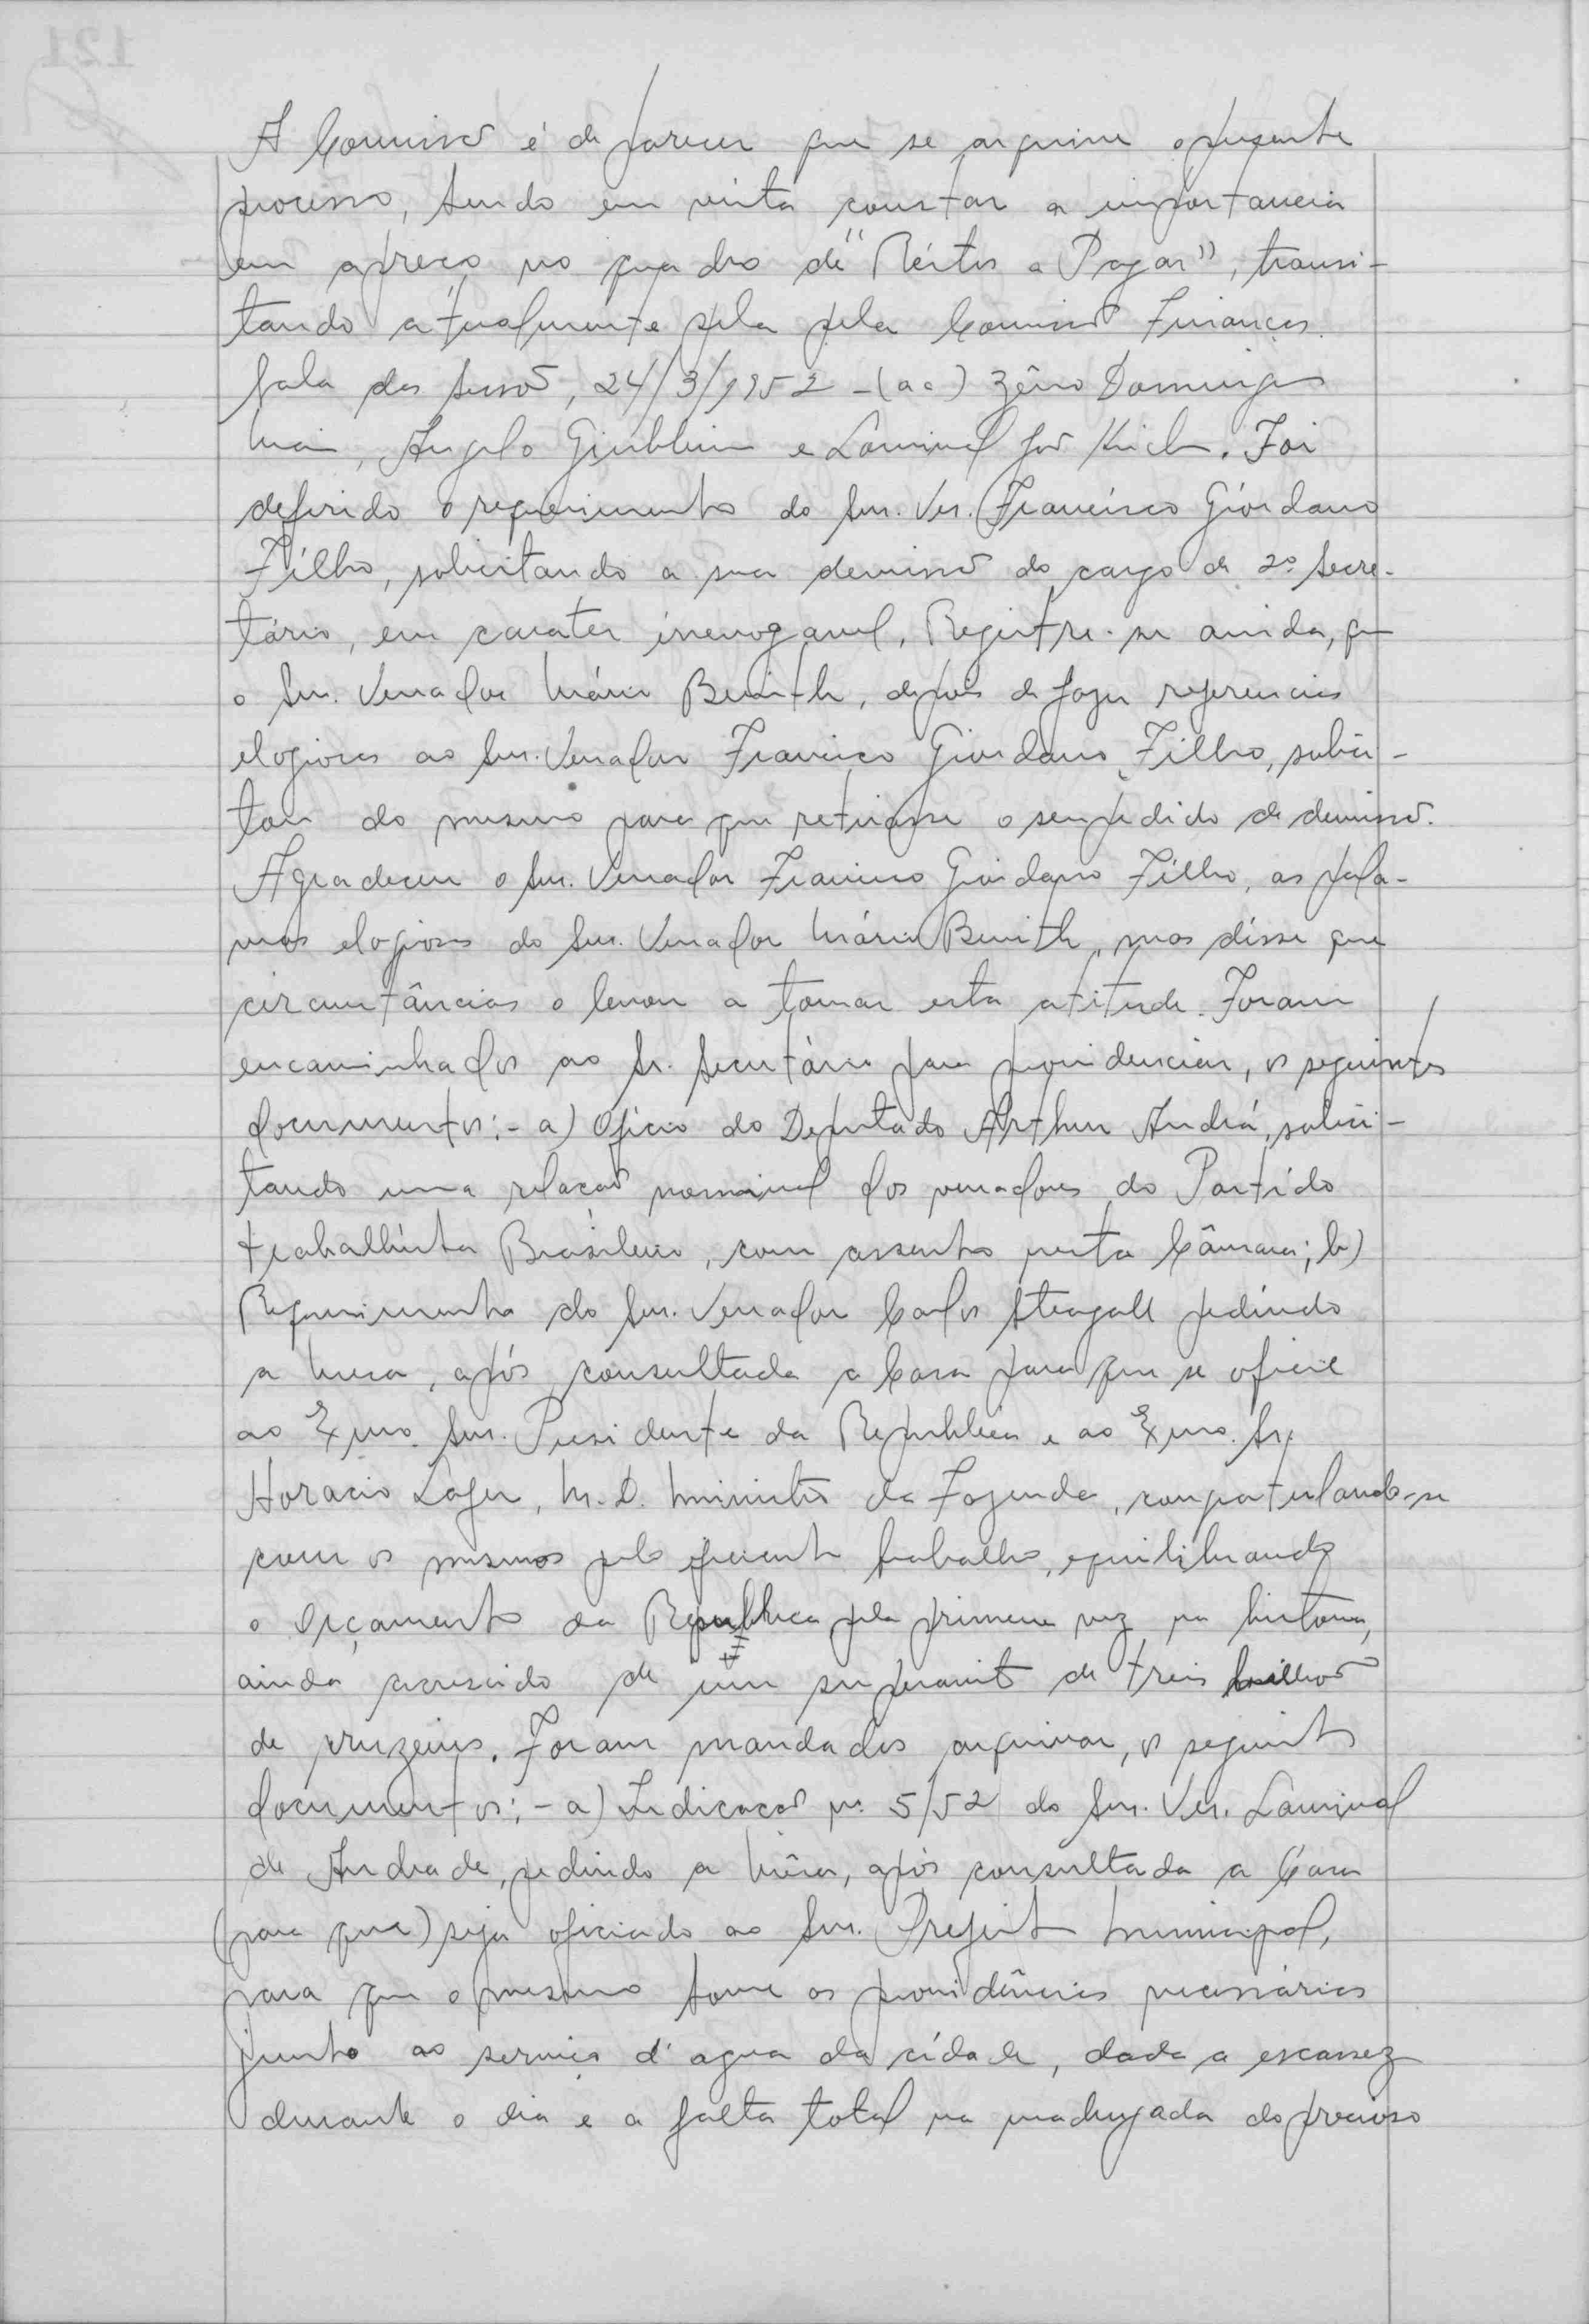 A Comissão é de parecer que se arquive o presente
processo, tendo em vista constar a importancia
em apreço no quadro de "Réstos a Pagar", transi-
tando atualmente pela pela Comissão Finanças.
Sala das Sessões, 24/3/1952 - (aa) Zêno Domingues
Maia, Angelo Giubbina e Lourival José Kich. Foi
deferido o requerimento do Snr. Ver. Francisco Giórdano
Filho, solicitando a sua demissão do cargo de 2º Secre-
tário, em carater irrevogavel, Registre-se ainda, que
o Snr. Vereador Mário Benith, depois de fazer referencias
elogiosas ao Snr. Vereador Francisco Giordano Filho, solici-
tou do mesmo para que retirasse o seu pedido de demissão.
Agradeceu o Snr. Vereador Francisco Giordano Filho, as pala-
vras elogiosas do Snr. Vereador Mário Benith, mas disse que
circunstâncias o levou a tomar esta atitude. Foram
encaminhados ao Sr. Secretário para providenciar, os seguintes
documentos:- a) Oficio do Deputado Arthur Andrá, solici-
tando uma relação nominal dos vereadores do Partido
trabalhista Brasileiro, com assento nesta Câmara; b)
Requerimento do Snr. Vereador Carlos Steagall pedindo
a mesa, após consultada a Casa para que se oficie
ao Exmo. Snr. Presidente da Republica e ao Exmo. Sr.
Horacio Lafer, M. D. Ministro da Fazenda, congratulando-se
com os mesmos pelo eficiente trabalho, equilibrando
o Orçamento da Republica pela primeira vez na historia,
ainda acrescido de um superavit de treis bilhões
de cruzeiros. Foram mandados arquivar, os seguintes
documentos:- a) Indicação nº 5/52 do Snr. Ver. Lourival
de Andrade, pedindo a Mêsa, após consultada a Casa
(para que) seja oficiado ao Snr. Prefeito Municipal,
para que o mesmo tome as providências necessárias
junto ao serviço d'agua da cidade, dada a escassez
durante o dia e a falta total na madrugada do precioso